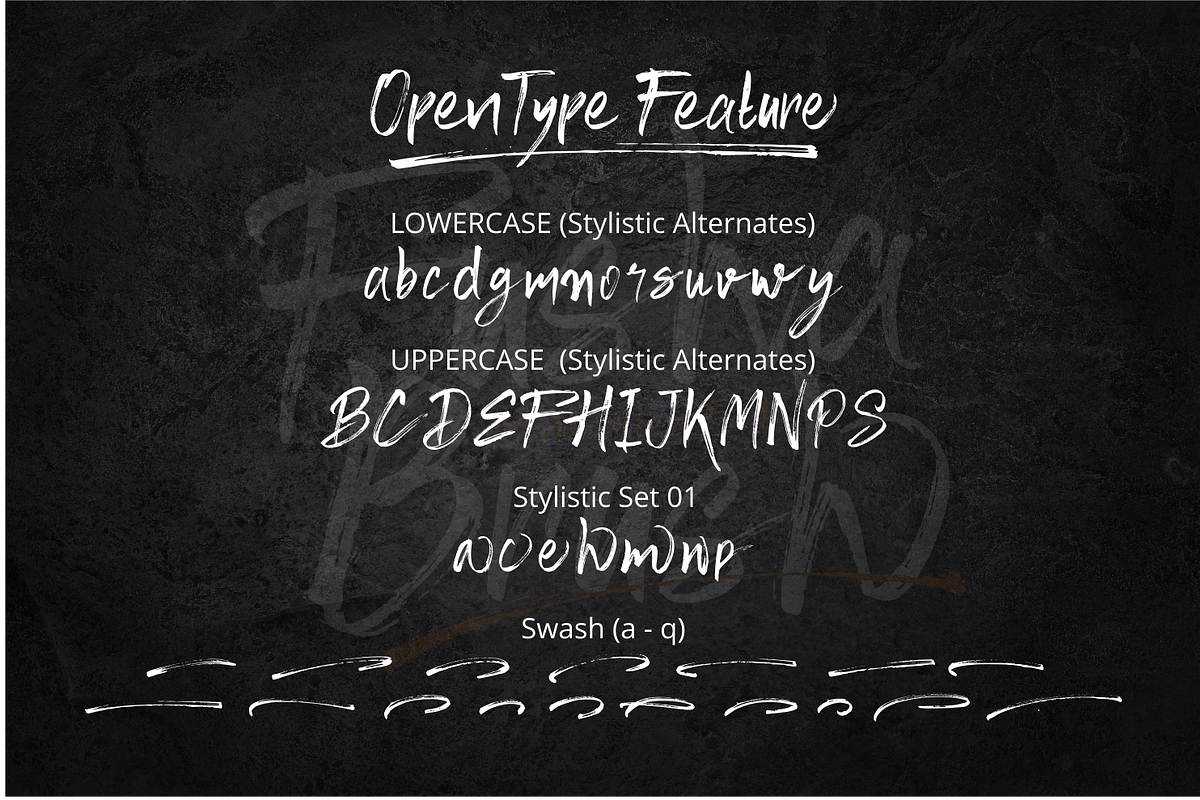 OpenType Feature
LOWERCASE (Stylistic Alternates)
abcdgmnorsuvwy
UPPERCASE (Stylistic Alternates)
BCDEFHIJKMNPS
Stylistic Set 01
acehmnp
Swash (a - q)
Fusha
Brush